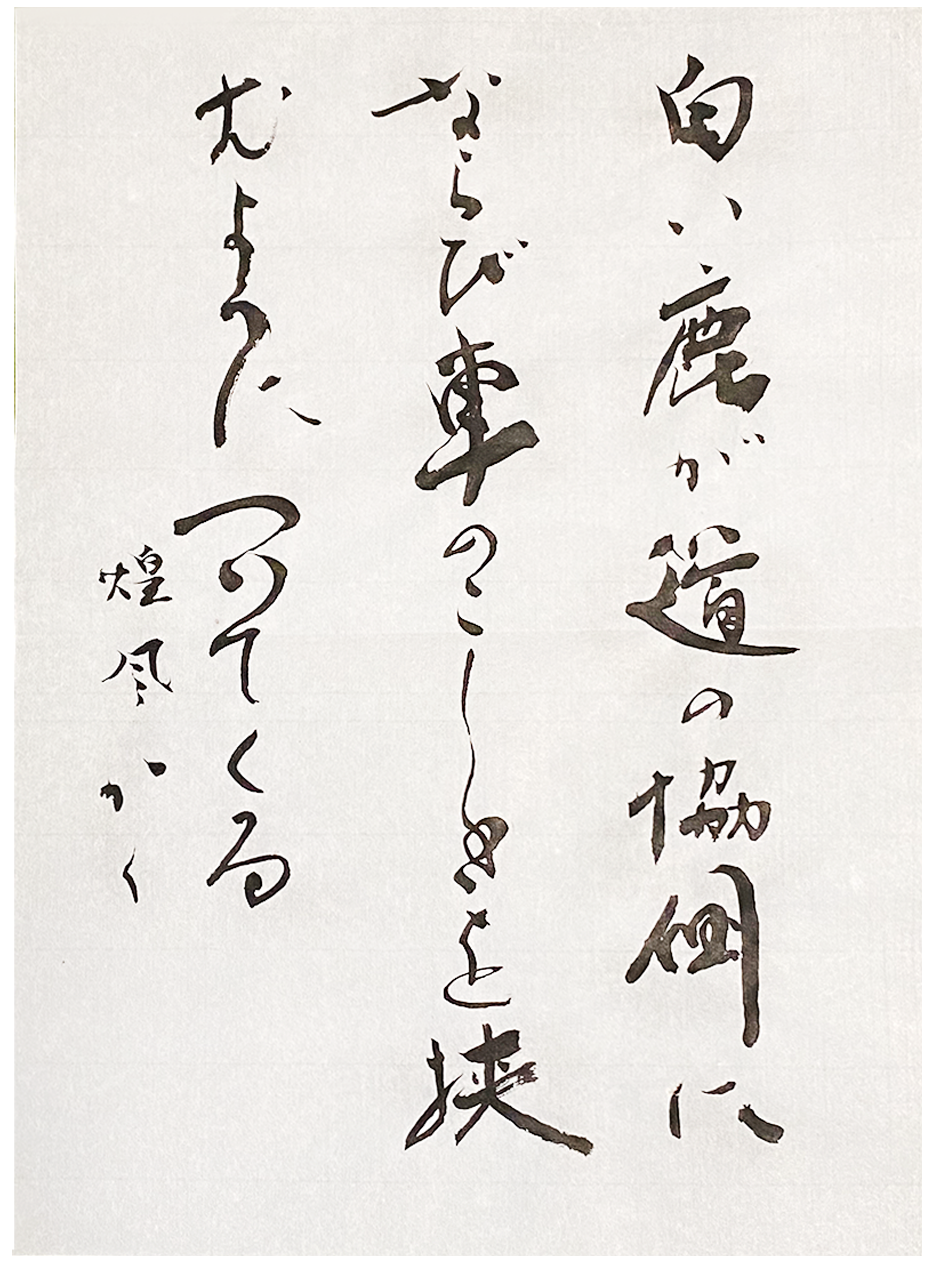 白い鹿が道の協側に
ならび車のこしきを挟
むように つのてくる
煌風かく